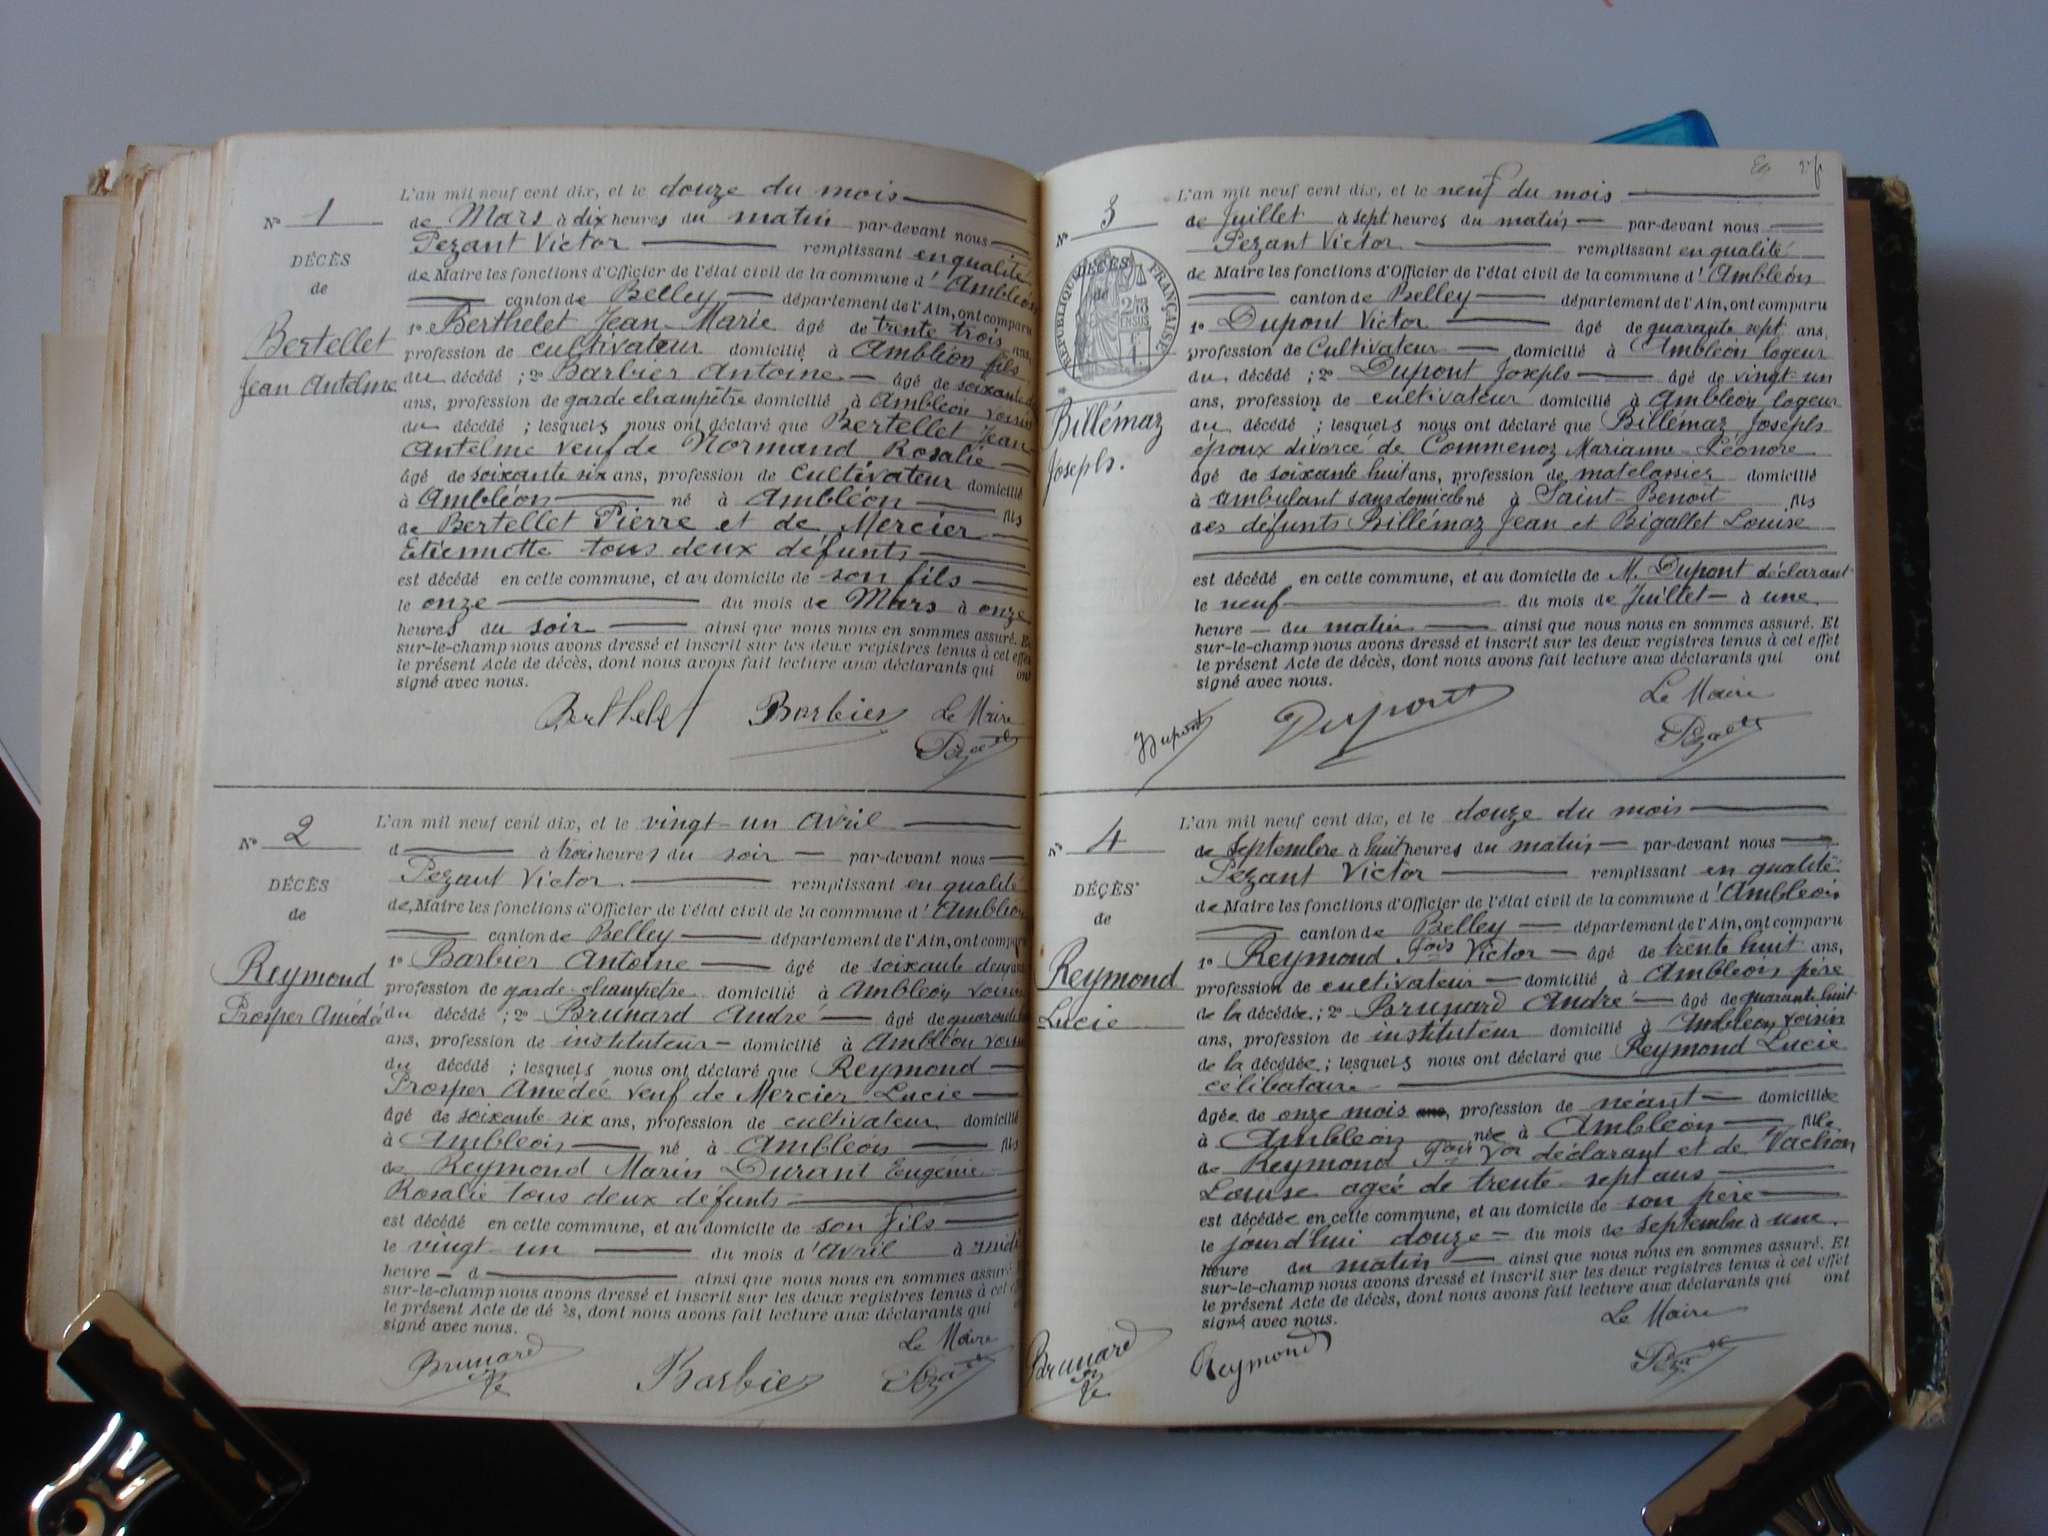 L'an mil neuf cent dix, et le douze du mois
N° 1
de Mars à dix heures du matin par-devant nous
Pezant Victor remplissant en qualité
DÉCÈS
de Maire les fonctions d'Officier de l'état civil de la commune d'Ambléon
de
canton de Belley département de l'Ain, ont comparu
1° Berthelet Jean-Marie âgé de trente trois ans,
Bertellet
profession de cultivateur domicilié à Ambléon fils
Jean Antelme
du décédé ; 2° Barbier Antoine âgé de soixante
ans, profession de garde champêtre domicilié à Ambléon voisin
du décédé ; lesquels nous ont déclaré que Bertellet Jean
Antelme veuf de Normand Rosalie
âgé de soixante six ans, profession de cultivateur domicilié
à Ambléon né à Ambléon fils
de Bertellet Pierre et de Mercier
Etiennette tous deux défunts
est décédé en cette commune, et au domicile de son fils
le onze du mois de Mars à onze
heures du soir ainsi que nous nous en sommes assuré. Et
sur-le-champ nous avons dressé et inscrit sur les deux registres tenus à cet effet
le présent Acte de décès, dont nous avons fait lecture aux déclarants qui ont
signé avec nous.
Berthelet Barbier Le Maire
Pezant
L'an mil neuf cent dix, et le vingt-un Avril
N° 2
d à trois heures du soir par-devant nous
Pezant Victor remplissant en qualité
DÉCÈS
de Maire les fonctions d'Officier de l'état civil de la commune d'Ambléon
de
canton de Belley département de l'Ain, ont comparu
1° Barbier Antoine âgé de soixante deux ans
Reymond
profession de garde-champêtre domicilié à Ambléon voisin
Prosper Amédée
du décédé ; 2° Brunard André âgé de quarante
ans, profession de instituteur domicilié à Ambléon voisin
du décédé ; lesquels nous ont déclaré que Reymond
Prosper Amédée veuf de Mercier Lucie
âgé de soixante six ans, profession de cultivateur domicilié
à Ambléon né à Ambléon fils
de Reymond Marin Durant Eugénie
Rosalie tous deux défunts
est décédé en cette commune, et au domicile de son fils
le vingt-un du mois d'Avril à midi
heure d ainsi que nous nous en sommes assuré.
sur-le-champ nous avons dressé et inscrit sur les deux registres tenus à cet
le présent Acte de décès, dont nous avons fait lecture aux déclarants qui
signé avec nous.
Le Maire
Brunard Barbier Pezant
2
L'an mil neuf cent dix, et le neuf du mois
N° 3
de Juillet à sept heures du matin par-devant nous
Pezant Victor remplissant en qualité
DÉCÈS
RÉPUBLIQUE FRANÇAISE
de Maire les fonctions d'Officier de l'état civil de la commune d'Ambléon
de
canton de Belley département de l'Ain, ont comparu
1° Dupont Victor âgé de quarante sept ans,
profession de Cultivateur domicilié à Ambléon logeur
du décédé ; 2° Dupont Joseph âgé de vingt-un
ans, profession de cultivateur domicilié à Ambléon logeur
Billémaz
Joseph.
du décédé ; lesquels nous ont déclaré que Billémaz Joseph
époux divorcé de Commenoz Marianne-Léonore
âgé de soixante huit ans, profession de matelassier domicilié
à ambulant sans domicile né à Saint-Benoit fils
des défunts Billémaz Jean et Bigallet Louise
est décédé en cette commune, et au domicile de M. Dupont déclarant
le neuf du mois de Juillet à une
heure du matin ainsi que nous nous en sommes assuré. Et
sur-le-champ nous avons dressé et inscrit sur les deux registres tenus à cet effet
le présent Acte de décès, dont nous avons fait lecture aux déclarants qui ont
signé avec nous.
Le Maire
Dupont Dupont Pezant
L'an mil neuf cent dix, et le douze du mois
N° 4
de Septembre à huit heures du matin par-devant nous
Pezant Victor remplissant en qualité
DÉCÈS
de Maire les fonctions d'Officier de l'état civil de la commune d'Ambléon
de
canton de Belley département de l'Ain, ont comparu
1° Reymond Fois Victor âgé de trente huit ans,
Reymond
profession de cultivateur domicilié à Ambléon père
Lucie
de la décédée ; 2° Brunard André âgé de quarante huit
ans, profession de instituteur domicilié à Ambléon voisin
de la décédée ; lesquels nous ont déclaré que Reymond Lucie
célibataire
âgée de onze mois ans, profession de néant domiciliée
à Ambléon née à Ambléon fille
de Reymond Fois Vor déclarant et de Vachon
Louise agée de trente-sept ans
est décédée en cette commune, et au domicile de son père
le jourd'hui douze du mois de septembre à une
heure du matin ainsi que nous nous en sommes assuré. Et
sur-le-champ nous avons dressé et inscrit sur les deux registres tenus à cet effet
le présent Acte de décès, dont nous avons fait lecture aux déclarants qui ont
signé avec nous.
Le Maire
Brunard Reymond Pezant